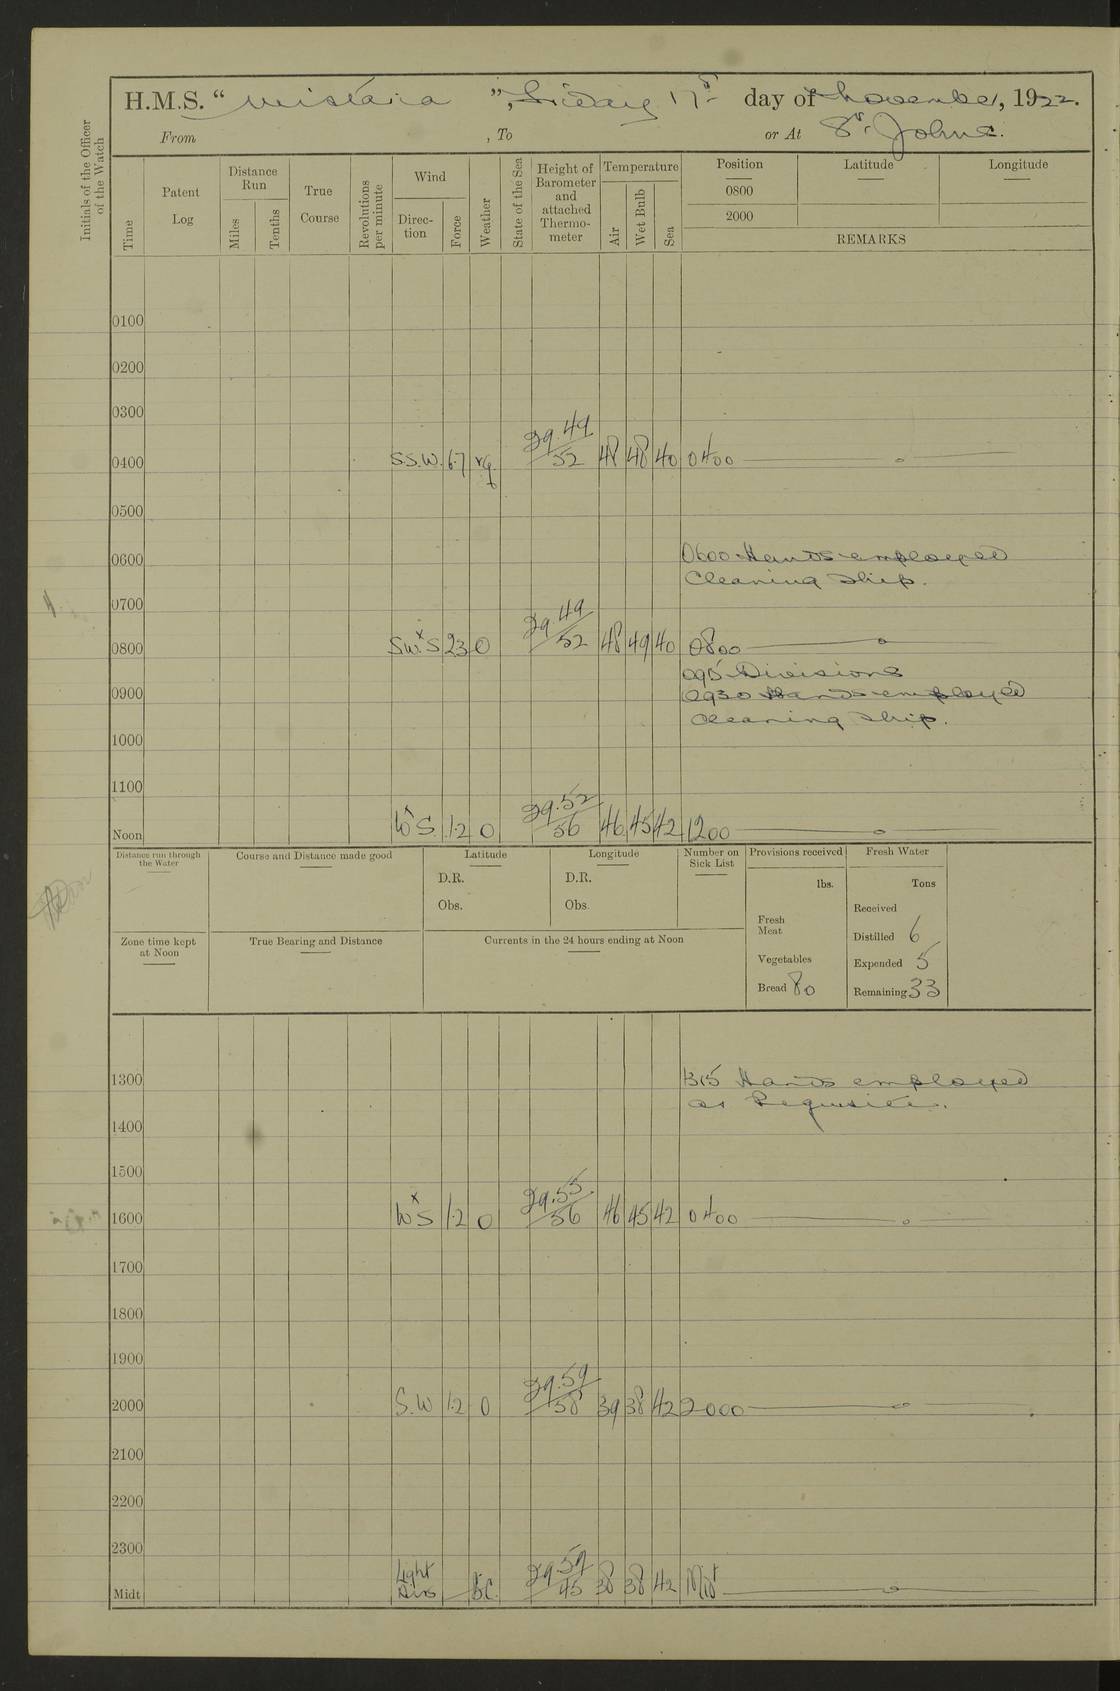 H.M.S. “ Wistaria ”, Friday 17th day of November, 1922.
From , To or At St. Johns.
Initials of the Officer of the Watch
Time
Patent Log
Distance Run
Miles
Tenths
True Course
Revolutions per minute
Wind
Direc-tion
Force
Weather
State of the Sea
Height of Barometer and attached Thermo-meter
Temperature
Air
Wet Bulb
Sea
Position
0800
2000
Latitude
Longitude
REMARKS
0100
0200
0300
0400 S.S.W. 6.7 rq 29.49/52 48 48 40 0400
0500
0600 0600 Hands employed
Cleaning Ship.
0700
0800 SWxS 23 0 29.49/52 48 49 40 0800
Divisions
0900 0930 Hands employed
Cleaning Ship.
1000
1100
Noon WxS 1.2 0 29.52/56 46 45 42 1200
Distance run through the Water
Course and Distance made good
Latitude
D.R.
Obs.
Longitude
D.R.
Obs.
Number on Sick List
Provisions received
lbs.
Fresh Meat
Vegetables
Bread 80
Fresh Water
Tons
Received
Distilled 6
Expended 5
Remaining 33
Zone time kept at Noon
True Bearing and Distance
Currents in the 24 hours ending at Noon
1300 1315 Hands employed
as Requisite.
1400
1500
1600 WxS 1.2 0 29.55/56 46 45 42 0400
1700
1800
1900
2000 S.W 1.2 0 29.59/58 39 38 42 2000
2100
2200
2300
Midt Light Airs bc. 29.59/45 38 38 42 Midt